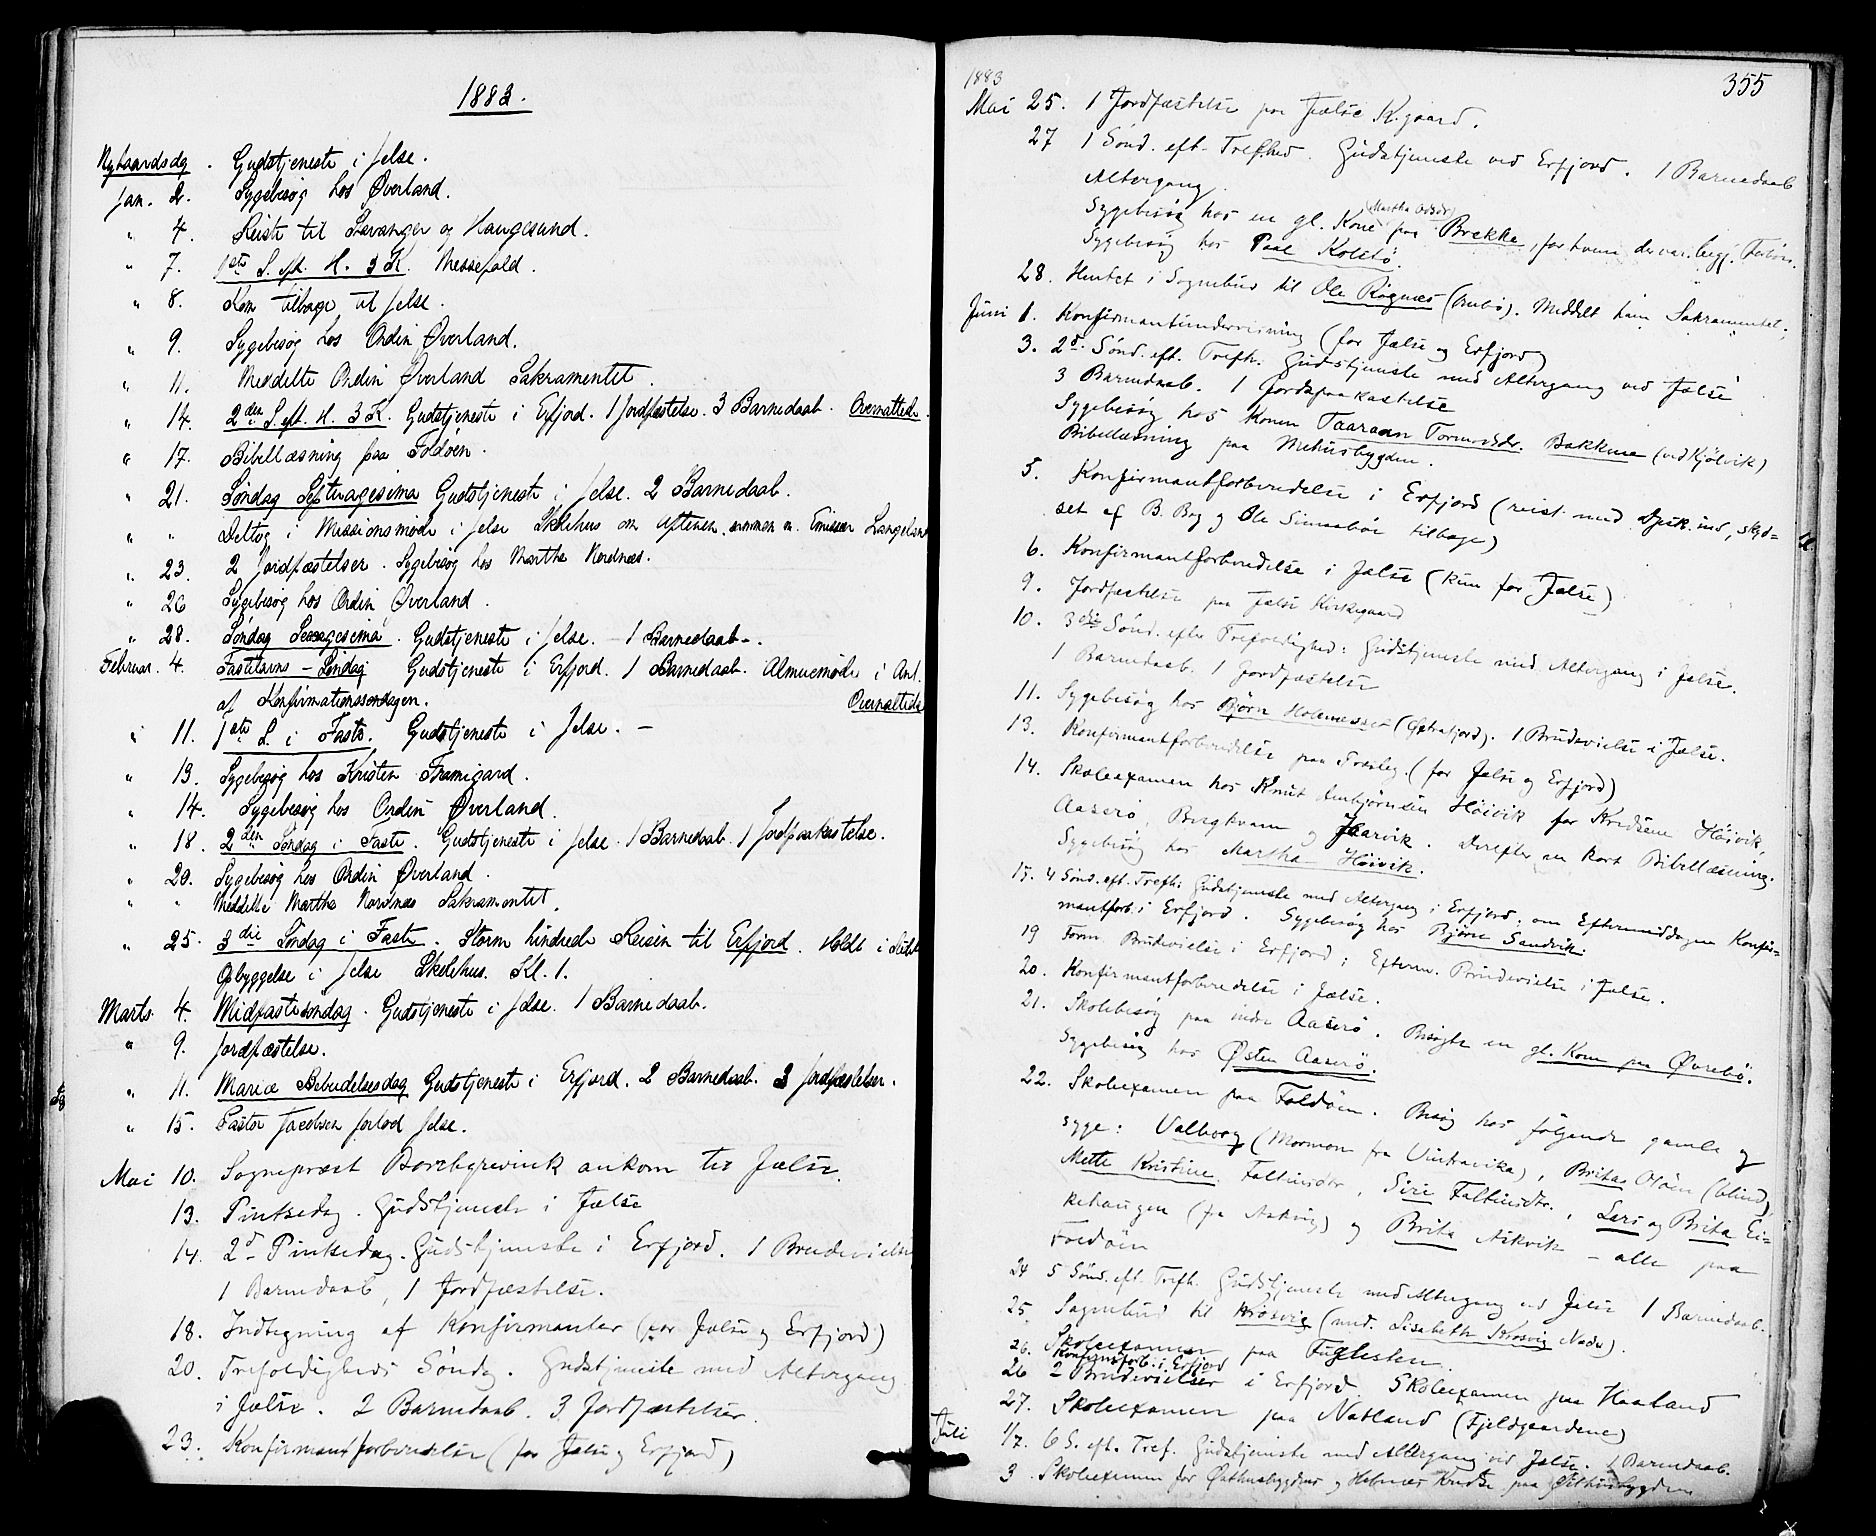 1883.
Nytaarsdg. Gudstjeneste i Jelse.
Jan. 2. Sygebesøg hos Øverland.
" 4. Reiste til Stavanger og Haugesund.
" 7. 1ste S. eft. H. 3 K. Messefald.
" 8. Kom tilbage til Jelse.
" 9. Sygebesøg hos Ordin Øverland.
" 11. Meddelte Ordin Øverland Sakramentet.
" 14. 2den S. eft. H. 3 K. Gudstjeneste i Erfjord. 1 Jordfæstelse. 3 Barnedaab. Overnattede.
" 17. Bibellæsning paa Foldøen.
" 21. Søndag Septuagesima Gudstjeneste i Jelse. 2 Barnedaab.
" " Deltog i Missionsmøde i Jelse Skolehus om Aftenen, sammen m. Emissær Langeland
" 23. 2 Jordfæstelser. Sygebesøg hos Martha Nordnæs.
" 26 Sygebesøg hos Ordin Øverland.
" 28. Søndag Sexagesima. Gudstjeneste i Jelse. – 1 Barnedaab –.
Februar. 4. Fastelavns – Søndag Gudstjeneste i Erfjord. 1 Barnedaab. Almuemøde i Anl.
af Konfirmationssøndagen. Overnattede
" 11. 1ste S. i Faste. Gudstjeneste i Jelse. –
" 13. Sygebesøg hos Kristen Framigard.
" 14. Sygebesøg hos Ordin Øverland.
" 18. 2den Søndag i Faste. Gudstjeneste i Jelse. 1 Barnedaab. 1 Jordpaakastelse.
" 20. Sygebesøg hos Ordin Øverland.
" " Meddelte Martha Nordnæs Sakramentet.
" 25. 3die Søndag i Faste. Storm hindrede Reisen til Erfjord. Holdt i Stedet
Opbyggelse i Jelse Skolehus. Kl. 1.
Marts 4. Midfastesøndag. Gudstjeneste i Jelse. 1 Barnedaab.
" 9. Jordfæstelse.
" 11. Mariæ Bebudelsesdag Gudstjeneste i Erfjord. 2 Barnedaab. 3 Jordfæstelser.
" 15. Pastor Jacobsen forlod Jelse.
Mai 10. Sognepræst Borchgrevink ankom til Jælse.
13. Pintsedag. Gudstjeneste i Jælse
14. 2d Pintsedag. Gudstjeneste i Erfjord. 1 Brudevielse
1 Barnedaab, 1 Jordfæstelse.
18. Indtegning af Konfirmanter (for Jælse og Erfjord)
20. Trefoldigheds Sønda. Gudstjeneste med Altergang
i Jælse. 2 Barnedaab. 3 Jordfæstelser.
23. Konfirmantforberedelse (for Jælse og Erfjord)
1883 355
Mai 25. 1 Jordfæstelse paa Jælse K.gaard.
27 1 Sønd. eft. Trefhed. Gudstjeneste ved Erfjord. 1 Barnedaab
Altergang.
Sygebesøg hos en gl. Kone (Martha Oddsdr) paa Brekke, for hvem der var begj. Forbøn.
Sygebesøg hos Paal Kolstø.
28. Hentet i Sognebud til Ole Røgnæs (Ombø). Meddelt ham Sakramentet.
Juni 1. Konfirmantundervisning (for Jælse og Erfjord)
3. 2d Sønd. eft. Trefh. Gudstjeneste med Altergang ved Jælse
3 Barnedaab. 1 Jordspaakastelse
Sygebesøg hos Konen Taaraan Tormodsdr. Bakkene (ved Kjølvik)
Bibellæsning paa Mehusbygden.
5. Konfirmantforberedelse i Erfjord (reist med Dpsk. ind, skyd-
set af B. Bog og Ole Simsabø tilbage)
6. Konfirmantforberedelse i Jælse (kun for Jælse)
9. Jordfæstelse paa Jælse Kirkegaard
10. 3die Sønd. efter Trefoldighed: Gudstjeneste med Altergang i Jælse.
1 Barnedaab. 1 Jordfæstelse
11. Sygebesøg hos Bjørn Holmesset (Østrafjord). 1 Brudevielse i Jælse.
13. Konfirmantforberedelse paa (for Jælse og Erfjord)
14. Skoleexamen hos Knut Aubjørnsen Høivik for Kredsene Høivik,
Aaserø, Bergkvam og Jaarvik. Derefter en kort Bibellæsning.
Sygebesøg hos Martha Høivik.
17. 4 Sønd. eft. Trefh. Gudstjeneste med Altergang i Erfjord. om Eftermiddagen Konfir-
mantforb. i Erfjord. Sygebesøg hos Bjørn Sandvik.
19 Form. Brudevielse i Erfjord; Efterm. Brudevielse i Jælse.
20. Konfirmantforberedelse i Jælse.
21. Skolebesøg paa indre Aaserø. Besøgte en gl. Kone paa Øvrebø.
Sygebesøg hos Østen Aaserø.
22. Skoleexamen paa Foldøen. Besøg hos følgende gamle og
syge: Valborg (Mormon fra Vintravika), Brita Oløen (blind),
Mette Kristine Faltinsdtr., Siri Faltinsdtr., Lars og Brita Ei-
kehaugen (fra Aakvig) og Brita Aikvik – alle paa
Foldøen
24 5 Sønd. eft. Trefh. Gudstjeneste med Altergang ved Jælse 1 Barnedaab.
25. Sognebud til Krosvig (med. Lisabeth Krosvig Nadv.).
26. Skoleexamen paa Fuglesten.
Konfirmforb. i Erfjord
26 2 Brudevielser i Erfjord. Skoleexamen paa Haaland
27. Skoleexamen paa Natland (Fjeldgaardene)
Juli 1/7. 6 S. eft. Tref. Gudstjeneste med Altergang ved Jælse. 1 Barnedaab.
3. Skoleexamen for Østhusbygdens og Hebnes Kreds paa Østhusbygden